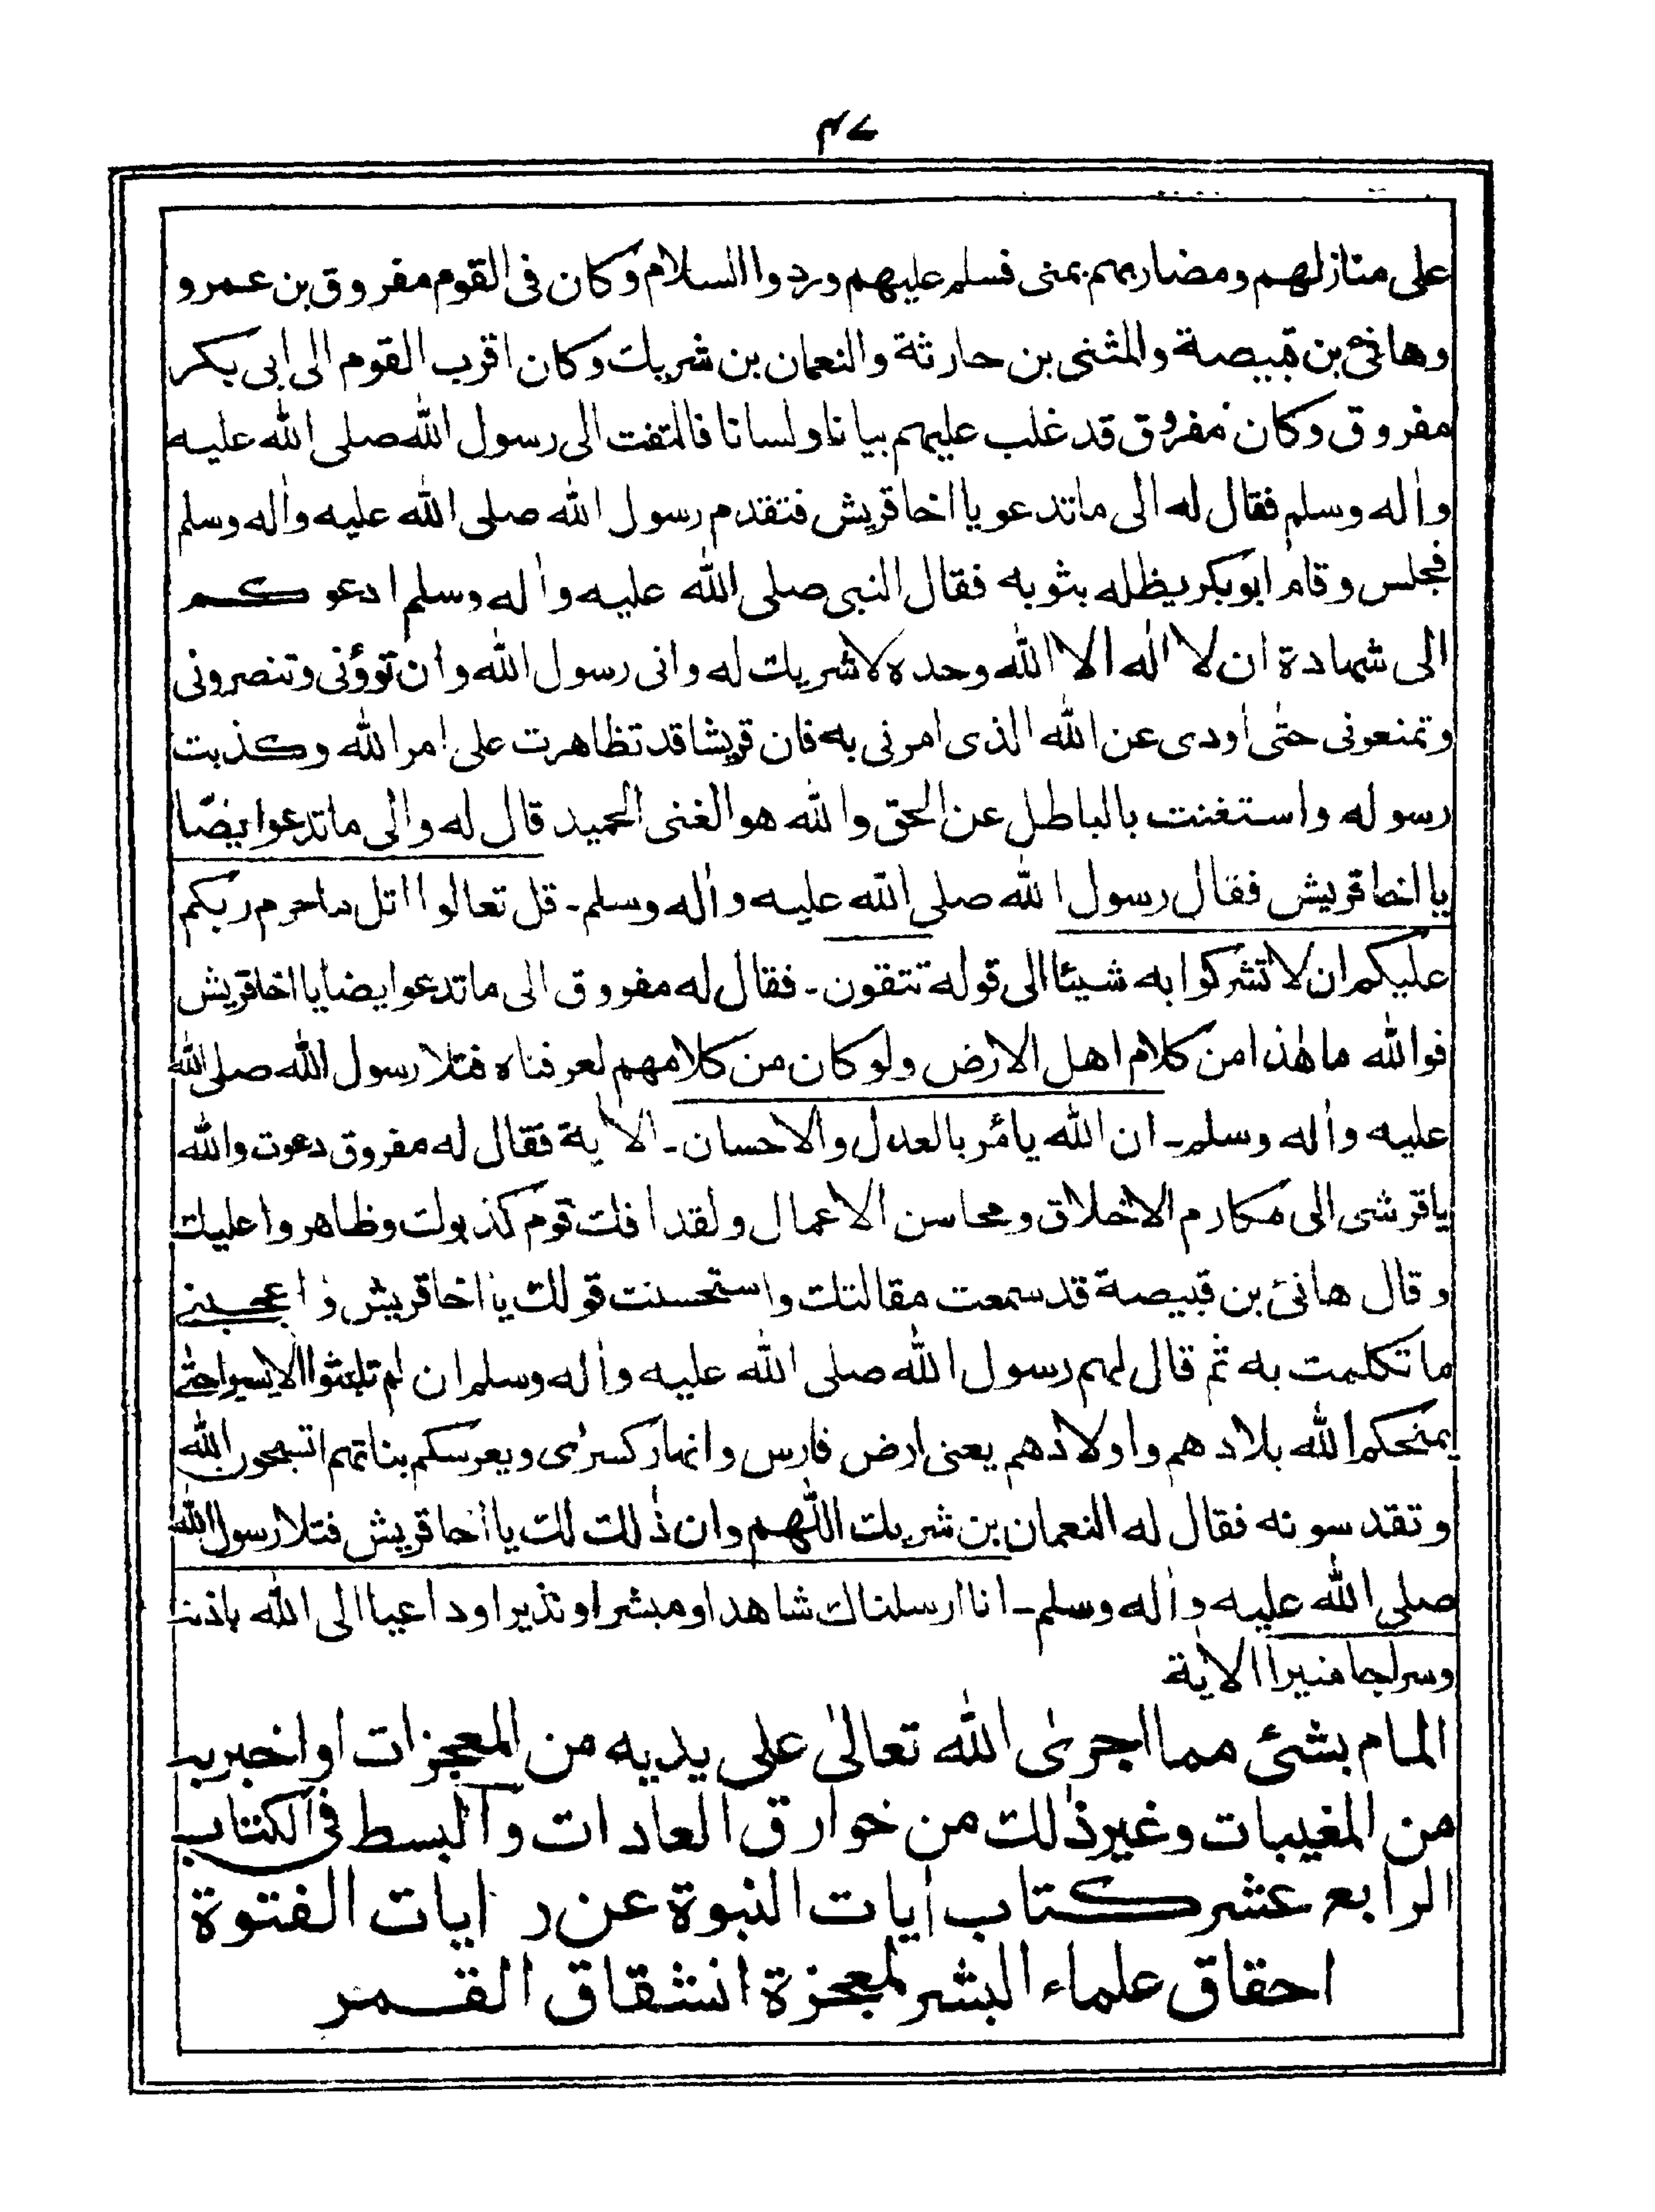 ۴۷
على منازلهم ومضاربهم بمنى فسلم عليهم وردوا السلام وكان فى القوم مفروق بن عمرو
وهانئ بن قبيصة والمثنى بن حارثة والنعمان بن شريك وكان اقرب القوم الى ابى بكر
مفروق وكان مفروق قد غلب عليهم بيانا ولسانا فالتفت الى رسول الله صلى الله عليه
واٰله وسلم فقال له الى ماتدعو يا اخا قريش فتقدم رسول الله صلى الله عليه واٰله وسلم
فجلس وقام ابوبكر يظله بثوبه فقال النبى صلى الله عليه واٰله وسلم ادعوكم
الى شهادة ان لا الٰه الا الله وحده لاشريك له وانى رسول الله وان توؤنى وتنصرونى
وتمنعونى حتى اودى عن الله الذى امرنى به فان قريشا قد تظاهرت على امر الله وكذبت
رسوله واستغنت بالباطل عن الحق والله هو الغنى الحميد قال له والى ماتدعوا ايضًا
يا اخا قريش فقال رسول الله صلى الله عليه واٰله وسلم۔ قل تعالوا اتل ماحرم ربكم
عليكم ان لاتشركوا به شيئا الى قوله تتقون۔ فقال له مفروق الى ماتدعوا ايضا يا اخا قريش
فوالله ماهٰذا من كلام اهل الارض ولوكان من كلامهم لعرفناه فتلا رسول الله صلى الله
عليه واٰله وسلم۔ ان الله يامٔر بالعدل والاحسان۔ الاٰية فقال له مفروق دعوت والله
ياقرشى الى مكارم الاخلاق ومحاسن الاعمال ولقد افك قوم كذبوك وظاهروا عليك
وقال هانئ بن قبيصة قد سمعت مقالتك واستحسنت قولك يا اخا قريش واعجبنى
ماتكلمت به ثم قال لهم رسول الله صلى الله عليه واٰله وسلم ان لم تلبثوا الا يسيرا حتى
يمنحكم الله بلادهم واولادهم يعنى ارض فارس وانهار كسرٰى ويعرسكم بناتهم اتسبحون الله
وتقدسونه فقال له النعمان بن شريك اللّٰهم وان ذٰلك لك يا اخا قريش فتلا رسول الله
صلى الله عليه واٰله وسلم۔ انا ارسلناك شاهدا ومبشرا ونذيرا وداعيا الى الله باذنه
وسراجا منيرا الاٰية
المام بشئ مما اجرىٰ الله تعالىٰ على يديه من المعجزات او اخبر به
من المغيبات وغير ذٰلك من خوارق العادات والبسط فى الكتاب
الرابع عشر كتاب اٰيات النبوة عن راٰيات الفتوة
احقاق علماء البشر لمعجزة انشقاق القمر